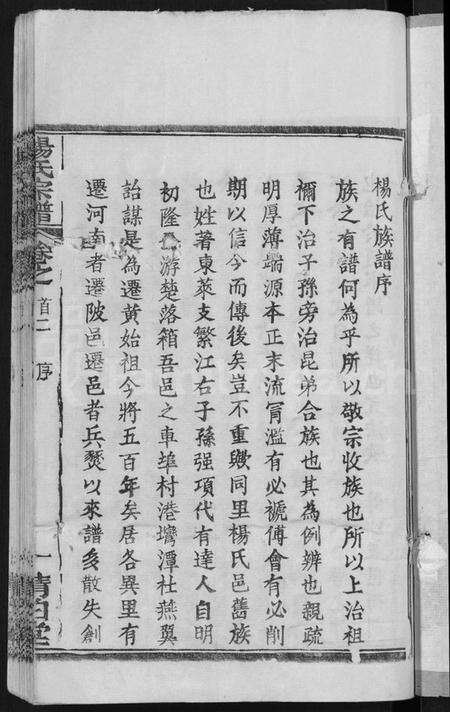 楊氏族譜序
族之有譜何為乎所以敬宗收族也所以上治祖
禰下治子孫旁治昆弟合族也其為例辨也親疏
明厚薄端源本正末流冐濫有必褫傅會有必削
期以信今而傳後矣豈不重歟同里楊氏邑舊族
也姓著東萊支繁江右子孫强項代有達人自明
初隆公游楚落籍吾邑之車埠村港壪潭杜燕翼
詒謀是為遷黃始祖今將五百年矣居各異里有
遷河南者遷陂邑遷邑者兵燹以來譜多散失創
楊氏宗譜 卷之 首二 序 一 清白堂